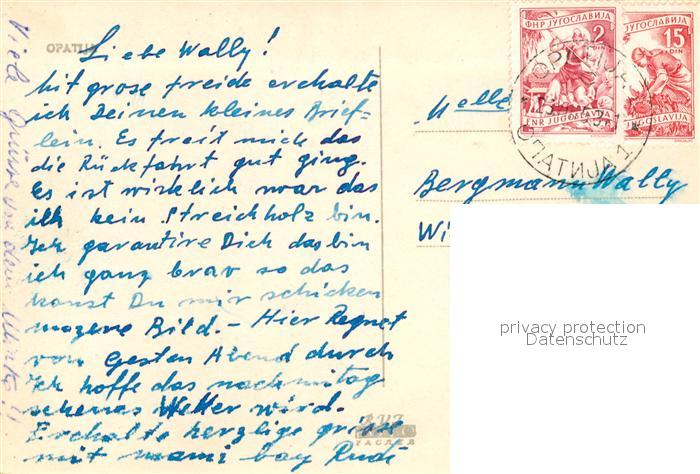 OPATIJA
Liebe Wally!
Mit grose freide erchalte
ich Deinen kleines Brief-
lein. Es freit mich das
die Rückfahrt gut ging.
Es ist wirklich war das
ich kein Streichholz bin.
Ich garantire Dich das bin
ich ganz brav so das
kanst Du mir schicken
Bild. - Hier Regnet
von Gesten Abend durch
Ich hoffe das nachmitag
schenas Wetter wird.
Erchalte herzlige grüsse
mit mami bay Rudi
Viele Grüsse von
ФНР ЈУГОСЛАВИЈА
2
DIN
FNR JUGOSLAVIJA
ЈУГОСЛАВИЈА
15
DIN
JUGOSLAVIJA
ОПАТИЈА 1
Bergmann Wally
Wi
ZAGREB
privacy protection
Datenschutz